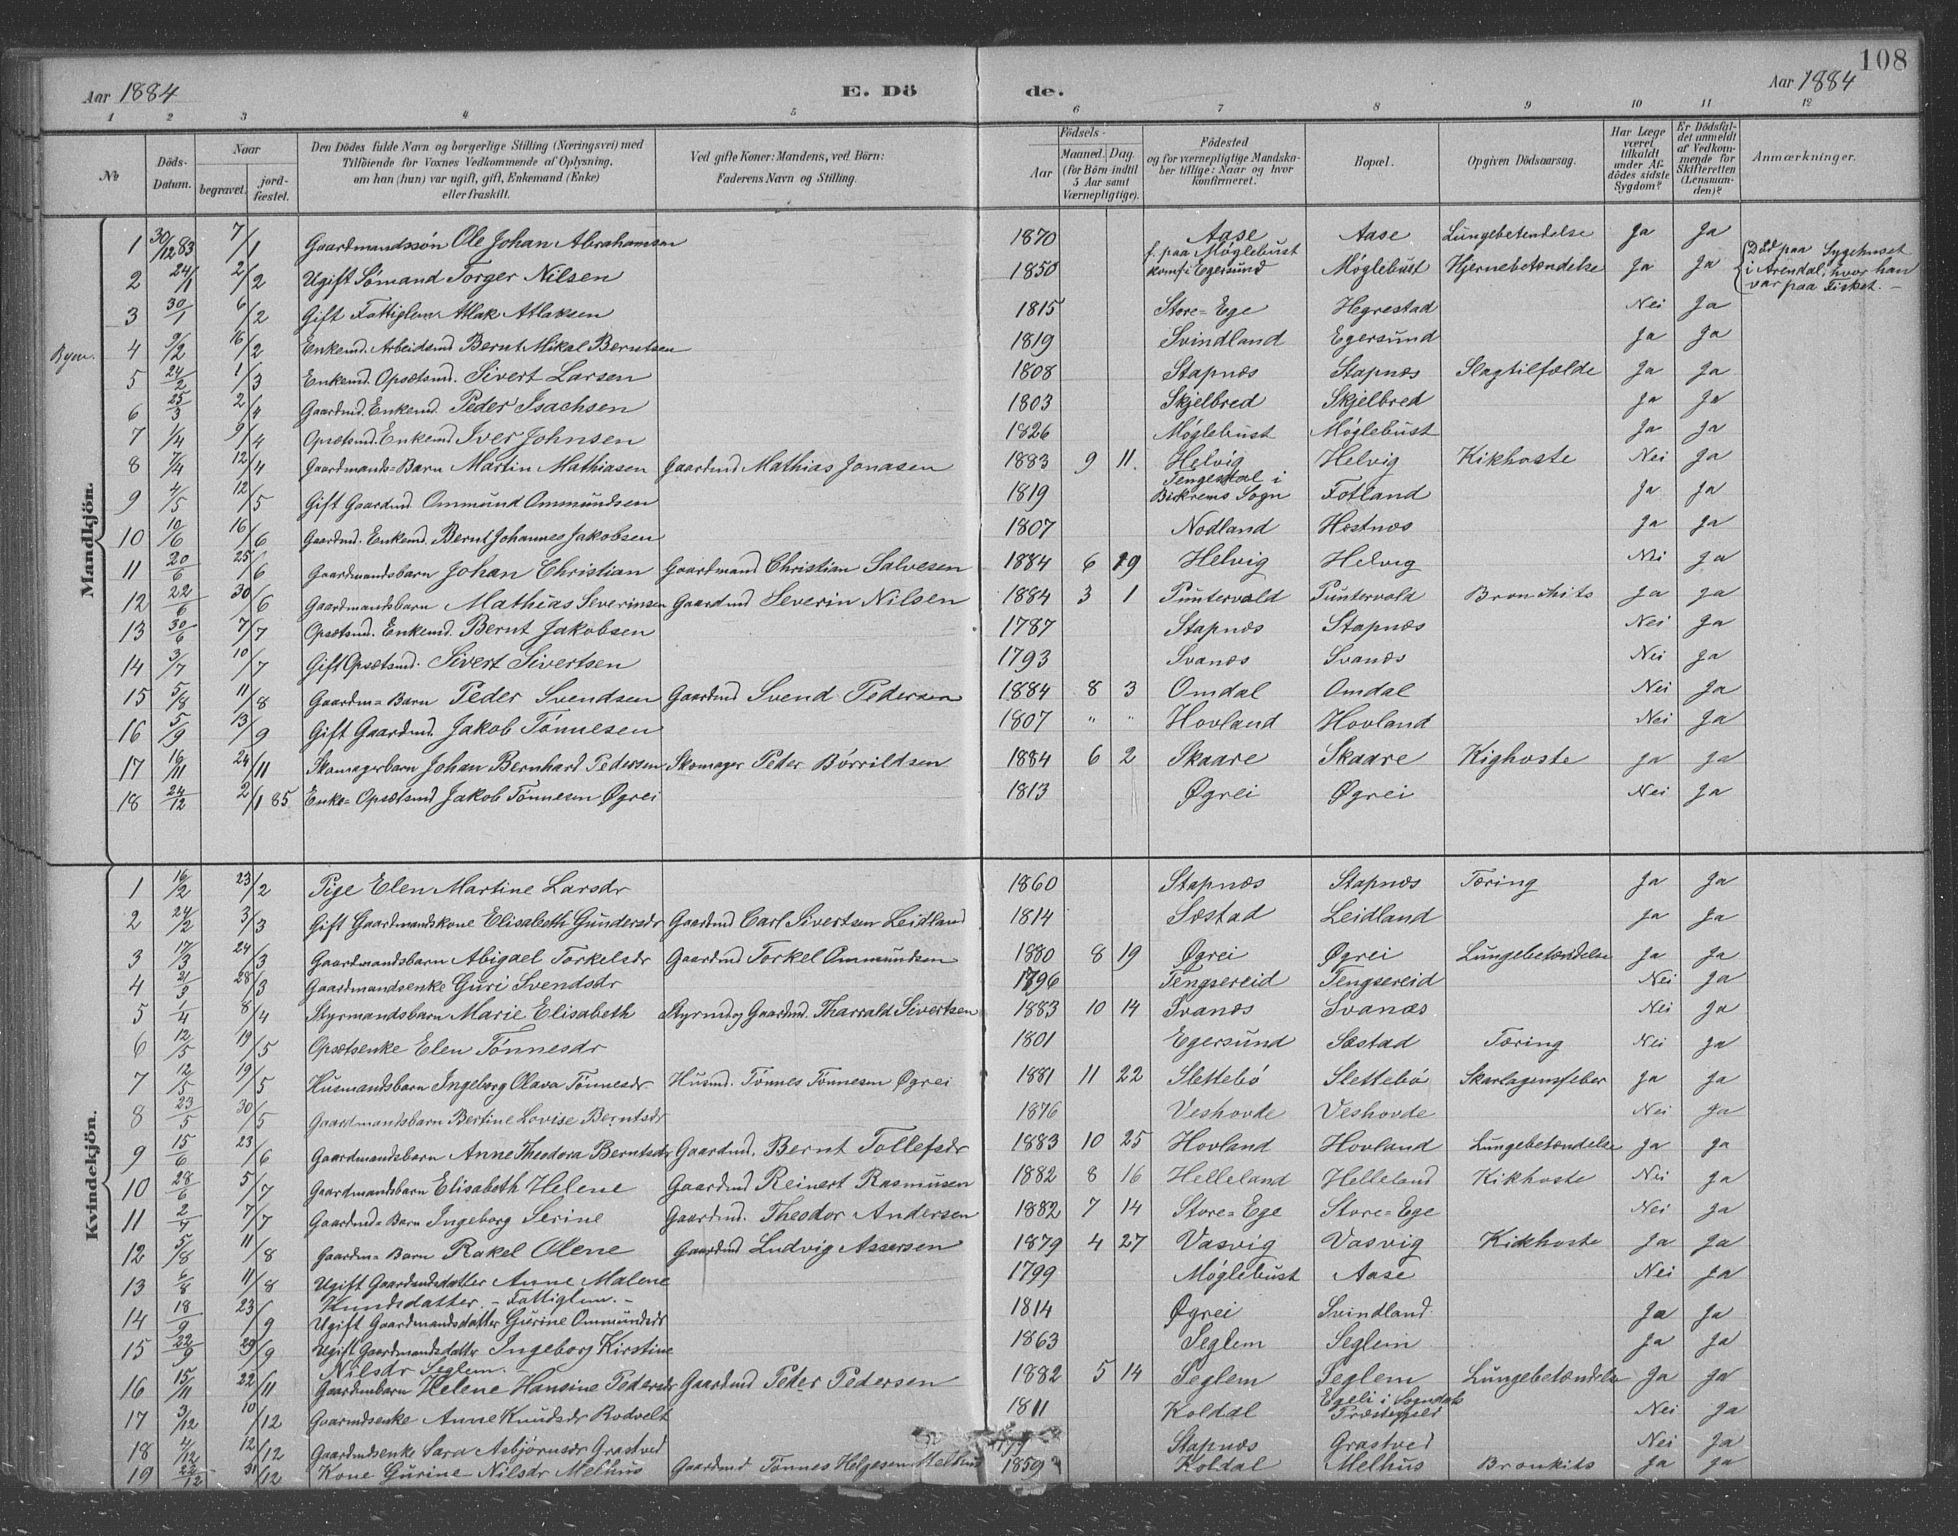 108
Aar 1884 E. Dö de. Aar 1884
1 2 3 4 5 6 7 8 9 10 11 12
No Döds-Datum. Naar begravet. jord-fæstet. Den Dödes fulde Navn og borgerlige Stilling (Næringsvei) med Tilföiende for Voxnes Vedkommende af Oplysning, om han (hun) var ugift, gift, Enkemand (Enke) eller fraskilt. Ved gifte Koner: Mandens, ved. Börn: Faderens Navn og Stilling. Födsels- Aar Maaned. Dag. (for Börn indtil 5 Aar samt Værnepligtige). Födested og for værnepligtige Mandskaber tillige: Naar og hvor konfirmeret. Bopæl. Opgiven Dödsaarsag. Har Læge været tilkaldt under Afdödes sidste Sygdom? Er Dödsfaldet anmeldt af Vedkommende for Skifteretten (Lensmanden)? Anmærkninger.
Mandkjön.
1 30/12 83 7/1 Gaardmandssön Ole Johan Abrahamsen 1870 Aase Aase Lungebetendelse Ja Ja
2 24/1 2/2 Ugift Sømand Torger Nilsen 1850 f. paa Møglebust konf i Egersund Møglebust Hjernebetændelse Ja Ja Død paa Sygehuset i Arendal, hvor han var paa Fisket. –
3 30/1 6/2 Gift Fattiglem Atlak Atlaksen 1815 Store-Ege Hegrestad Nei Ja
Byen. 4 9/2 16/2 Enkemd. Arbeidsmd Bernt Mikal Berntsen 1819 Svindland Egersund Ja Ja
5 24/2 1/3 Enkemd. Opsætsmd. Sivert Larsen 1808 Stapnæs Stapnæs Slagtilfælde Ja Ja
6 25/3 2/4 Gaardmd. Enkemd. Peder Isachsen 1803 Skjelbred Skjelbred Ja Ja
7 1/4 9/4 Opsætsmd. Enkemd Iver Johnsen 1826 Møglebust Møglebust Ja Ja
8 7/4 12/4 Gaardmands-Barn Martin Mathiasen Gaardmd Mathias Jonasen 1883 9 11. Helvig Helvig Kikhoste Nei Ja
9 4/5 12/5 Gift Gaardmd Ommund Ommundsen 1819 Tengesdal i Birkrems Sogn Fotland Ja Ja
10 10/6 16/6 Gaardmd. Enkemd. Bernt Johannes Jakobsen 1807 Nodland Hæstnæs Ja Ja
11 20/6 25/6 Gaardmandsbarn Johan Christian Gaardmand Christian Salvesen 1884 6 19 Helvig Helvig Nei Ja
12 22/6 30/6 Gaardmandsbarn Mathias Severinsen Gaardmd Severin Nilsen 1884 3 1 Puntervold Puntervold Bronchits Ja Ja
13 30/6 7/7 Opsætsmd. Enkemd. Bernt Jakobsen 1787 Stapnæs Stapnæs Nei Ja
14 3/7 10/7 Gift Opsætsmd. Sivert Sivertsen 1793 Svanæs Svanæs Nei Ja
15 5/8 11/8 Gaardm- Barn Peder Svendsen Gaardmd Svend Pedersen 1884 8 3 Omdal Omdal Nei Ja
16 5/9 13/9 Gift Gaardmd. Jakob Tønnesen 1807 " " Hovland Hovland Nei Ja
17 16/11 24/11 Skomagerbarn Johan Bernhard Pedersen Skomager Peter Børrildsen 1884 6 2 Skaare Skaare Kighoste Ja Ja
18 24/12 2/1 85 Enke- Opsætsmd Jakob Tønnesen Øgrei 1813 Øgrei Øgrei Nei Ja
Kvindekjön.
1 16/2 23/2 Pige Elen Martine Larsdr 1860 Stapnæs Stapnæs Tæring Ja Ja
2 24/2 3/3 Gift Gaardmandskone Elisabeth Gundersdr Gaardmd Carl Sivertsen Leidland 1814 Sæstad Leidland Ja Ja
3 17/3 24/3 Gaardmandsbarn Abigael Torkelsdr Gaardmd Torkel Ommundsen 1880 8 19 Øgrei Øgrei Lungebetændelse Ja Ja
4 21/3 28/3 Gaardmandsenke Guri Svendsdr 1796 Tengsereid Tengsereid Nei Ja
5 1/4 8/4 Styrmandsbarn Marie Elisabeth Styrmd og Gaardmd. Tharrald Sivertsen 1883 10 14 Svanæs Svanæs Nei Ja
6 12/5 19/5 Opsætsenke Elen Tønnesdr 1801 Egersund Sæstad Tæring Nei Ja
7 12/5 19/5 Husmandsbarn Ingeborg Olava Tønnesdr. Husmd. Tønnes Tønnesen Øgrei 1881 11 22 Slettebö Slettebö Skarlagensfeber Ja Ja
8 23/5 30/5 Gaardmandsbarn Bertine Lovise Berntsdr 1876 Veshovde Veshovde Nei Ja
9 15/6 23/6 Gaardmandsbarn Anne Theodora Berntsdr Gaardmd. Bernt Tollefsdr 1883 10 25 Hovland Hovland Lungebetændelse Ja Ja
10 28/6 5/7 Gaardmandsbarn Elisabeth Helene Gaardmd Reinert Rasmusen 1882 8 16 Helleland Helleland Kikhoste Nei Ja
11 2/7 7/7 Gaardmd- Barn Ingeborg Serine Gaardmd. Theodor Andersen 1882 7 14 Store-Ege Store-Ege Nei Ja
12 5/8 11/8 Gaardm- Barn Rakel Olene Gaardmd Ludvig Assersen 1879 4 27 Vasvig Vasvig Kikhoste Ja Ja
13 6/8 11/8 Ugift Gaardmdsdatter Anne Malene Knudsdatter. – Fattiglem. – 1799 Møglebust Aase Nei Ja
14 18/9 23/9 Ugift Gaardmandsdatter Gurine Ommundsdr 1814 Øgrei Svindland Ja Ja
15 22/9 29/9 Ugift Gaardmandsdatter Ingeborg Kirstine Nilsdr Seglem. 1863 Seglem Seglem Ja Ja
16 15/11 22/11 Gaardmbarn Helene Hansine Pedersdr Gaardmd Peder Pedersen 1882 5 14 Seglem Seglem Lungebetændelse Ja Ja
17 3/12 10/12 Gaardmdsenke Anne Knudsdr Rodvelt 1811 Koldal Egeli i Sogndals Præstegjeld Nei Ja
18 4/12 12/12 Gaardmdsenke Sara Asbjørnsdr Grastved Stapnæs Grastved Nei Ja
19 22/12 31/12 Kone Gurine Nilsdr Melhus Gaardmd Tønnes Helgesen Melhus 1859 Koldal Melhus Bronkits Ja Ja